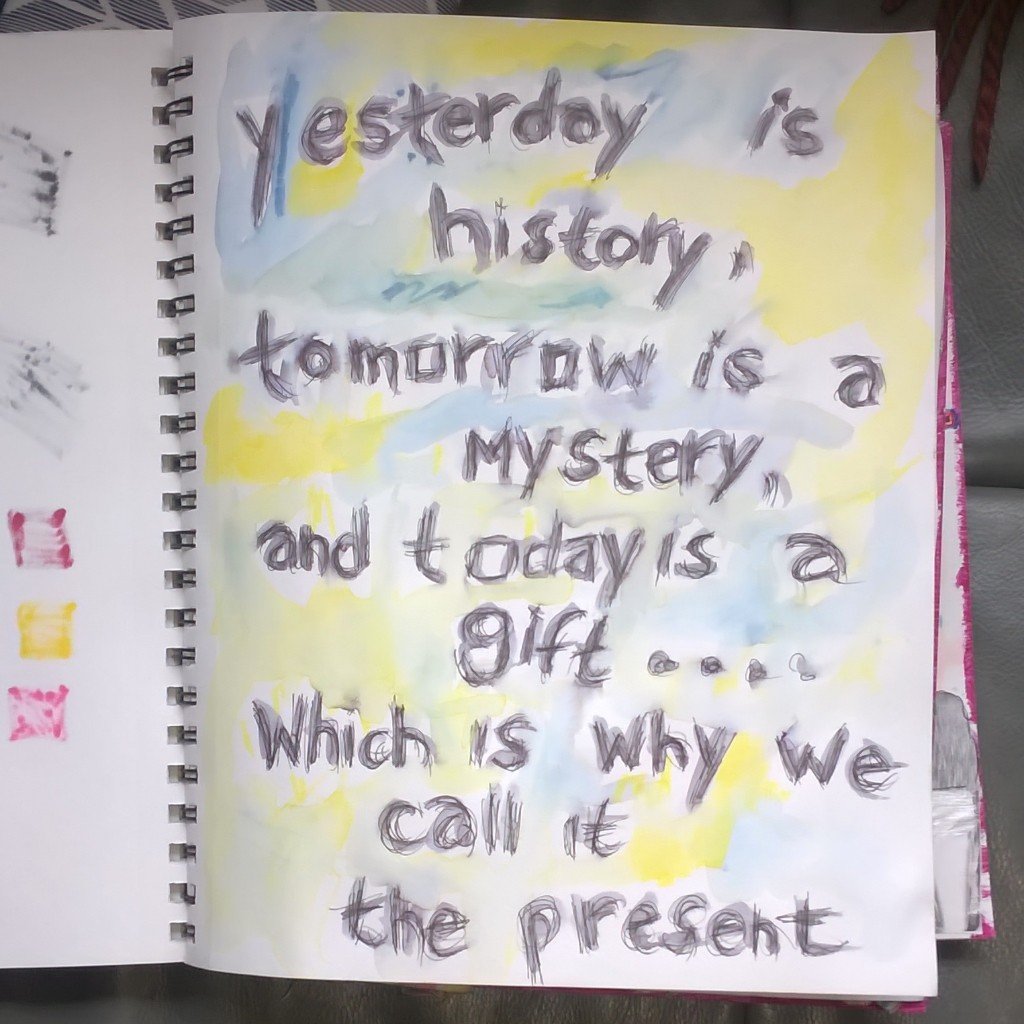 yesterday is
history,
tomorrow is a
Mystery,
and today is a
gift ....
Which is why we
call it
the present